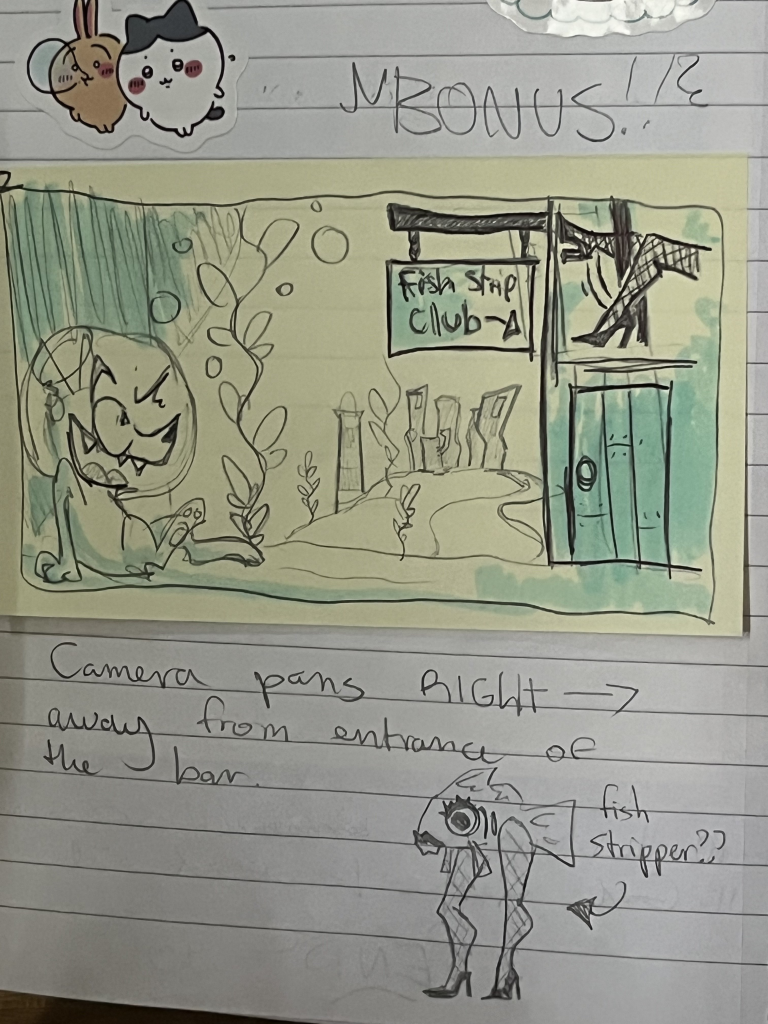 BONUS!!?
Fish Strip
Club→
Camera pans RIGHT →
away from entrance of
the bar.
fish
stripper??